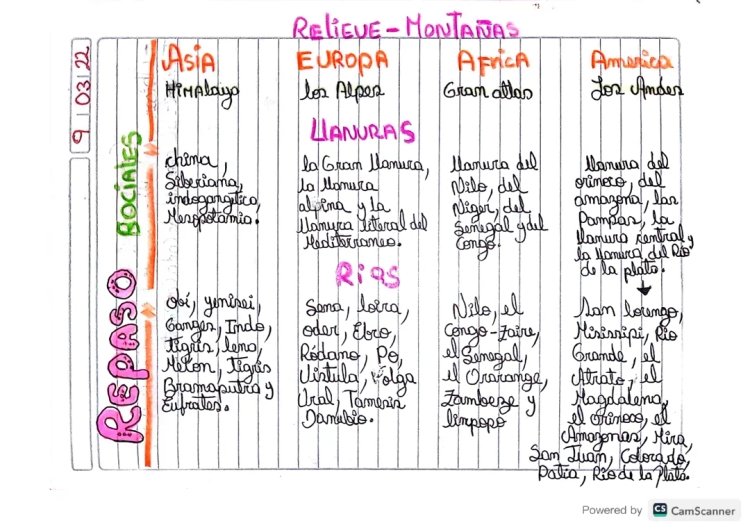 RELIEVE - MONTAÑAS
9 | 03 | 22
REPASO
SOCIALES
ASIA
HiMAlaya
EUROPA
los Alpes
AFRICA
Gran atlas
America
Los Andes
LLANURAS
china,
Siberiana,
indogangética,
Mesopotamia.
la Gran llanura,
la llanura
alpina y la
llanura litoral del
Mediterraneo.
llanura del
Nilo, del
Niger, del
Senegal y del
Congo.
llanura del
orinoco, del
amazona, las
Pampas, la
llanura central y
la llanura del Rio
de la plata.
RiOS
obi, yenisei,
Ganges, Indo,
tigris, lena,
Tigris
Bramaputra y
Eufrates.
Sena, loira,
oder, Ebro,
Ródano, Po,
Vistula, Volga
Ural, Tamesis
Danubio.
Nilo, el
Congo-Zaire,
el Senegal,
el Orarange,
Zambeze y
limpopo
San lorenzo,
Misisipi, Rio
Grande, el
Atrato, el
Magdalena,
el orinoco, el
Amazonas, Mira,
San Juan, Colorado,
Patia, Rio de la Plata.
Powered by CS CamScanner